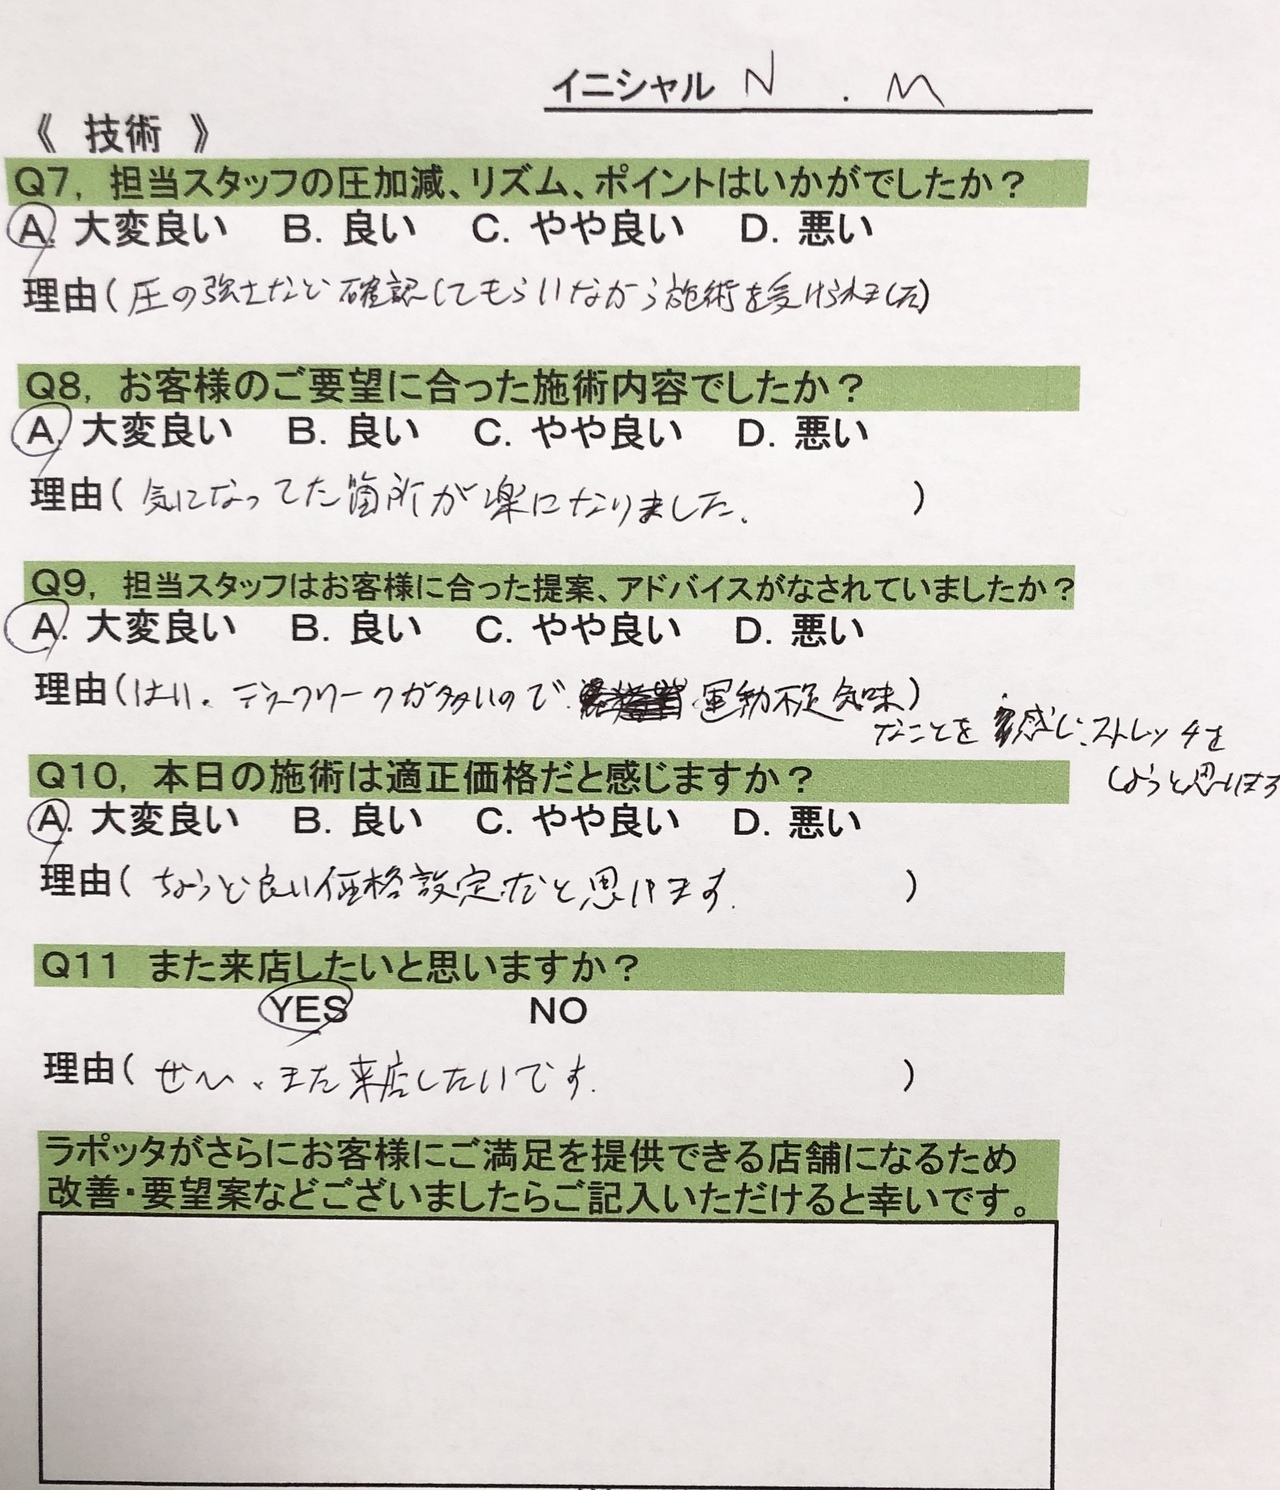 イニシャル N . M
《 技術 》
Q7, 担当スタッフの圧加減、リズム、ポイントはいかがでしたか？
A. 大変良い B. 良い C. やや良い D. 悪い
理由( 圧の強さなど確認してもらいながら施術を受けられました)
Q8, お客様のご要望に合った施術内容でしたか？
A. 大変良い B. 良い C. やや良い D. 悪い
理由( 気になってた箇所が楽になりました. )
Q9, 担当スタッフはお客様に合った提案、アドバイスがなされていましたか？
A. 大変良い B. 良い C. やや良い D. 悪い
理由(はい。デスクワークが多いので、運動不足気味)
なことを感じ、ストレッチを
しようと思います
Q10, 本日の施術は適正価格だと感じますか？
A. 大変良い B. 良い C. やや良い D. 悪い
理由( ちょうど良い価格設定だと思います. )
Q11 また来店したいと思いますか？
YES NO
理由( ぜひ、また来店したいです. )
ラポッタがさらにお客様にご満足を提供できる店舗になるため
改善・要望案などございましたらご記入いただけると幸いです。